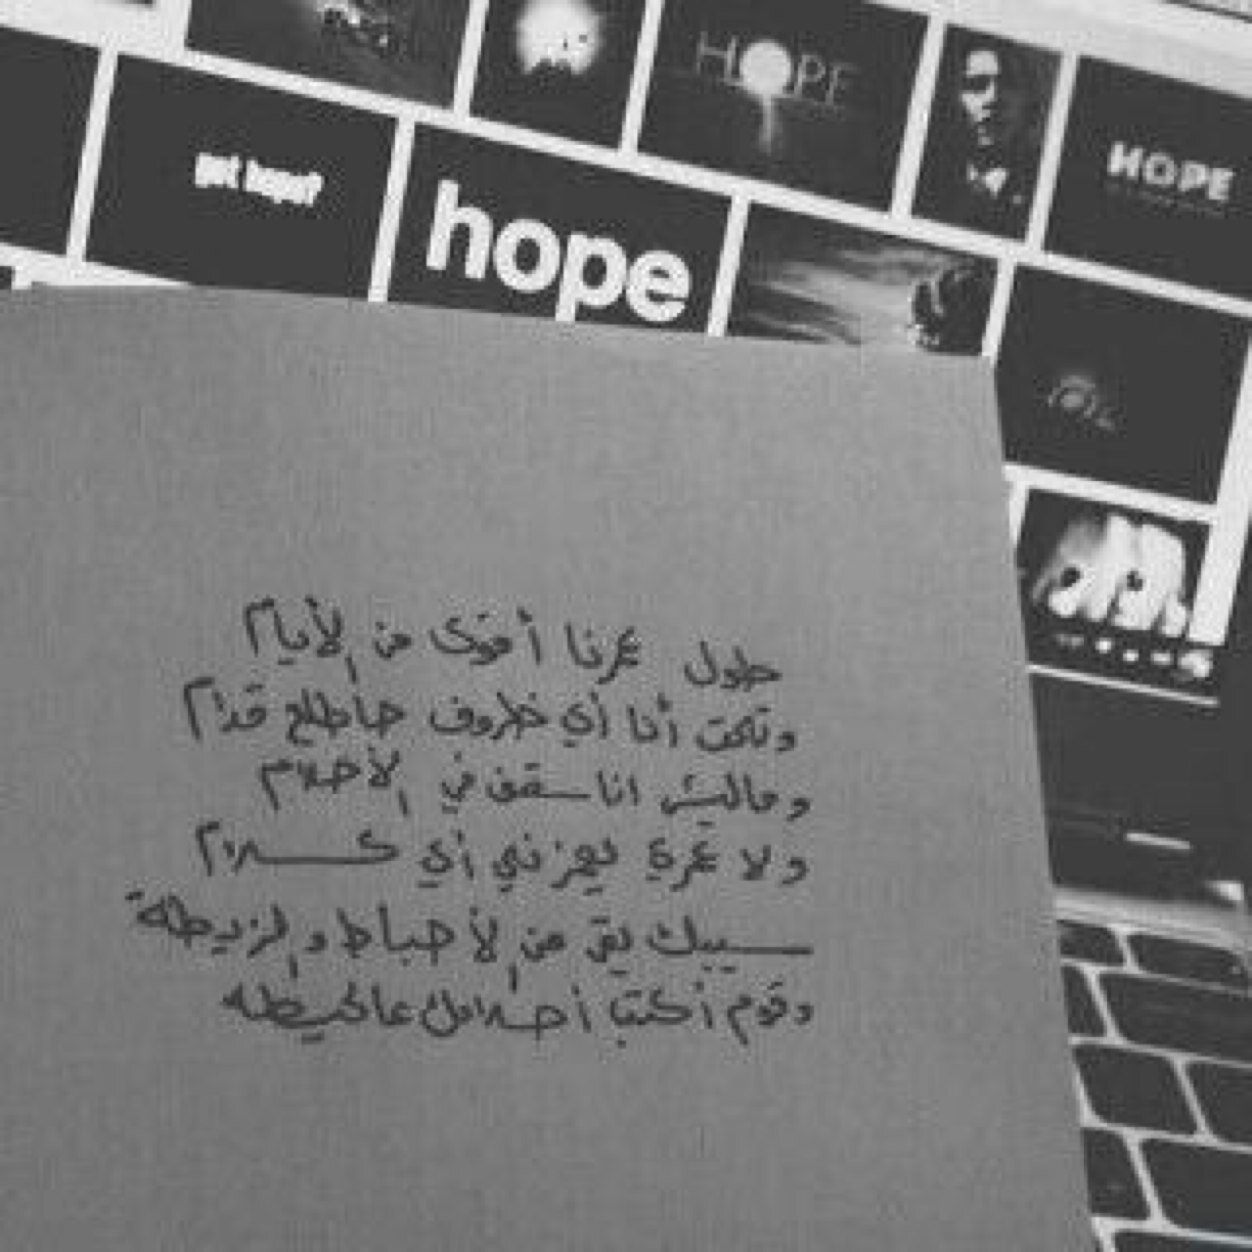 HOPE
HOPE
got hope?
hope
طول عمرنا أقوى من الأيام
وتحت أنا أي ظروف حاطلع قدام
وماليش انا سقف في الأحلام
ولا عمري يهزني أي كلام
سيبك بقى من الأحباط والزيطة
وقوم أكتب أحلامك عالحيطه